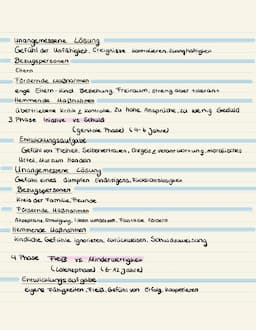 Unangemessene Lösung
Gefühl der Unfähigkeit, Ereignisse kontrollieren, Zwanghaftigkeit
Bezugspersonen
Eltern
Fördernde Maßnahmen
enge Eltern-Kind Beziehung, Freiraum, streng aber tolerant
Hemmende Maßnahmen
übertriebene Kritik / Kontrolle, zu hohe Ansprüche, zu wenig Geduld
3. Phase Iniative vs Schuld
(genitale Phase) (4-6 Jahre)
Entwicklungsaufgabe
Gefühl von Freiheit, Selbstvertrauen, Ehrgeiz, Verantwortung, moralisches
Urteil, Mut zum Handeln
Unangemessene Lösung
Gefühl eines dumpfen Eindringens, Rücksichtslosigkeit
Bezugspersonen
Kreis der Familie, Freunde
Fördernde Maßnahmen
Akzeptanz, Ermutigung, Ideen umsetzen, Fantasie fördern
Hemmende Maßnahmen
kindliche Gefühle ignorieren, zurückweisen, Schuldzuweisung
4. Phase Fleiß vs Minderwertigkeit
(Latenzphase) (6-12 Jahre)
Entwicklungsaufgabe
eigene Fähigkeiten, Fleiß, Gefühl von Erfolg, kooperieren